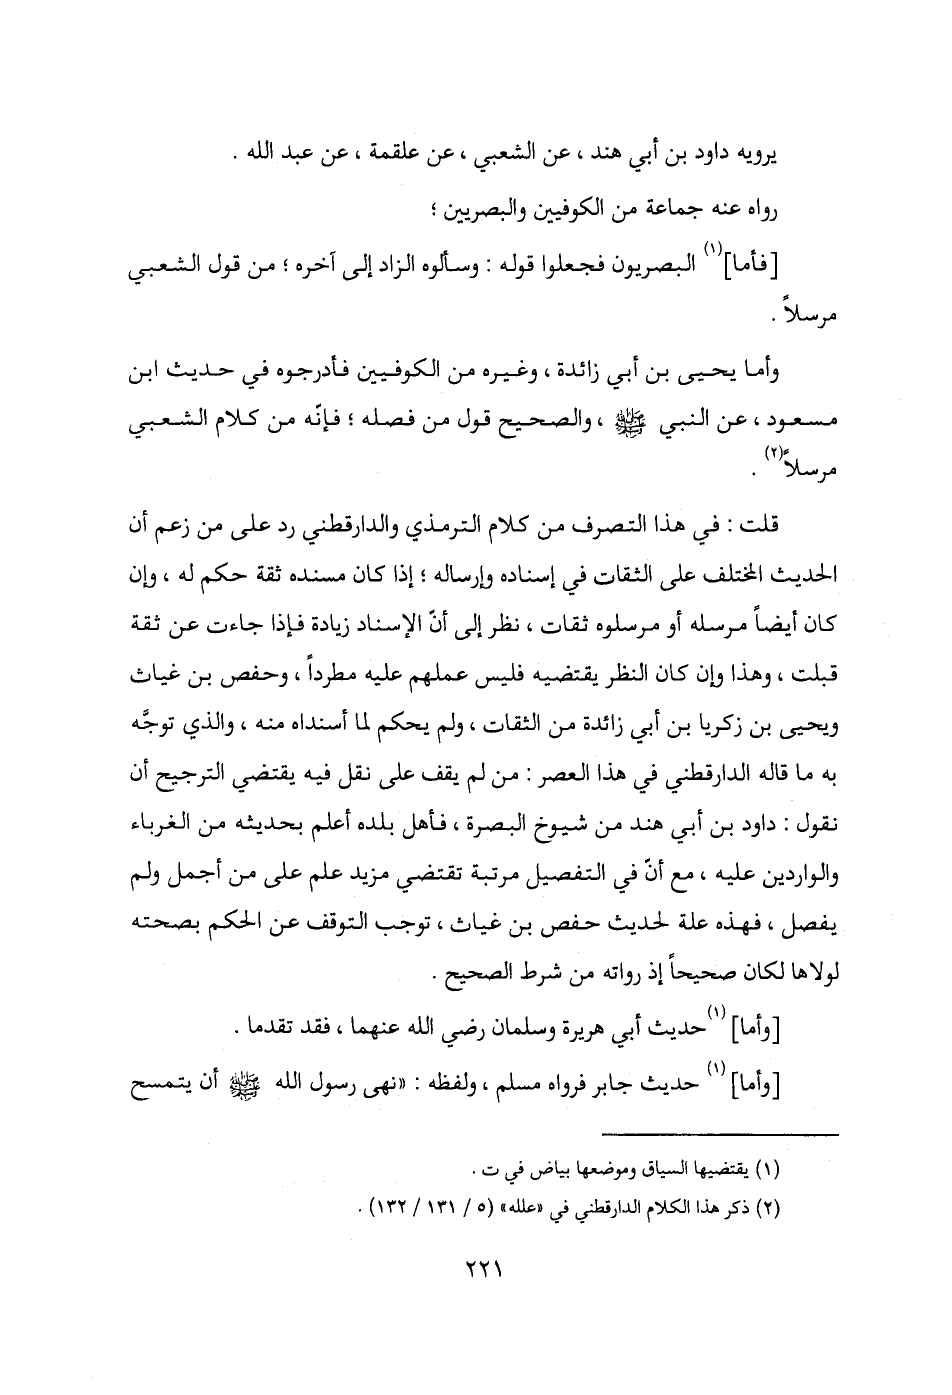 يرويه داود بن أبي هند ، عن الشعبي ، عن علقمة ، عن عبد الله .
رواه عنه جماعة من الكوفيين والبصريين ؛
[فأما](١) البصريون فجعلوا قوله : وسألوه الزاد إلى آخره ؛ من قول الشعبي
مرسلاً .
وأما يحيى بن أبي زائدة ، وغيره من الكوفيين فأدرجوه في حديث ابن
مسعود ، عن النبي ﷺ ، والصحيح قول من فصله ؛ فإنّه من كلام الشعبي
مرسلاً(٢) .
قلت : في هذا التصرف من كلام الترمذي والدارقطني رد على من زعم أن
الحديث المختلف على الثقات في إسناده وإرساله ؛ إذا كان مسنده ثقة حكم له ، وإن
كان أيضاً مرسله أو مرسلوه ثقات ، نظر إلى أنّ الإسناد زيادة فإذا جاءت عن ثقة
قبلت ، وهذا وإن كان النظر يقتضيه فليس عملهم عليه مطرداً ، وحفص بن غياث
ويحيى بن زكريا بن أبي زائدة من الثقات ، ولم يحكم لما أسنداه منه ، والذي توجَّه
به ما قاله الدارقطني في هذا العصر : من لم يقف على نقل فيه يقتضي الترجيح أن
نقول : داود بن أبي هند من شيوخ البصرة ، فأهل بلده أعلم بحديثه من الغرباء
والواردين عليه ، مع أنّ في التفصيل مرتبة تقتضي مزيد علم على من أجمل ولم
يفصل ، فهذه علة لحديث حفص بن غياث ، توجب التوقف عن الحكم بصحته
لولاها لكان صحيحاً إذ رواته من شرط الصحيح .
[وأما](١) حديث أبي هريرة وسلمان رضي الله عنهما ، فقد تقدما .
[وأما](١) حديث جابر فرواه مسلم ، ولفظه : «نهى رسول الله ﷺ أن يتمسح
(١) يقتضيها السياق وموضعها بياض في ت .
(٢) ذكر هذا الكلام الدارقطني في «علله» (٥ / ١٣١ / ١٣٢) .
٢٢١